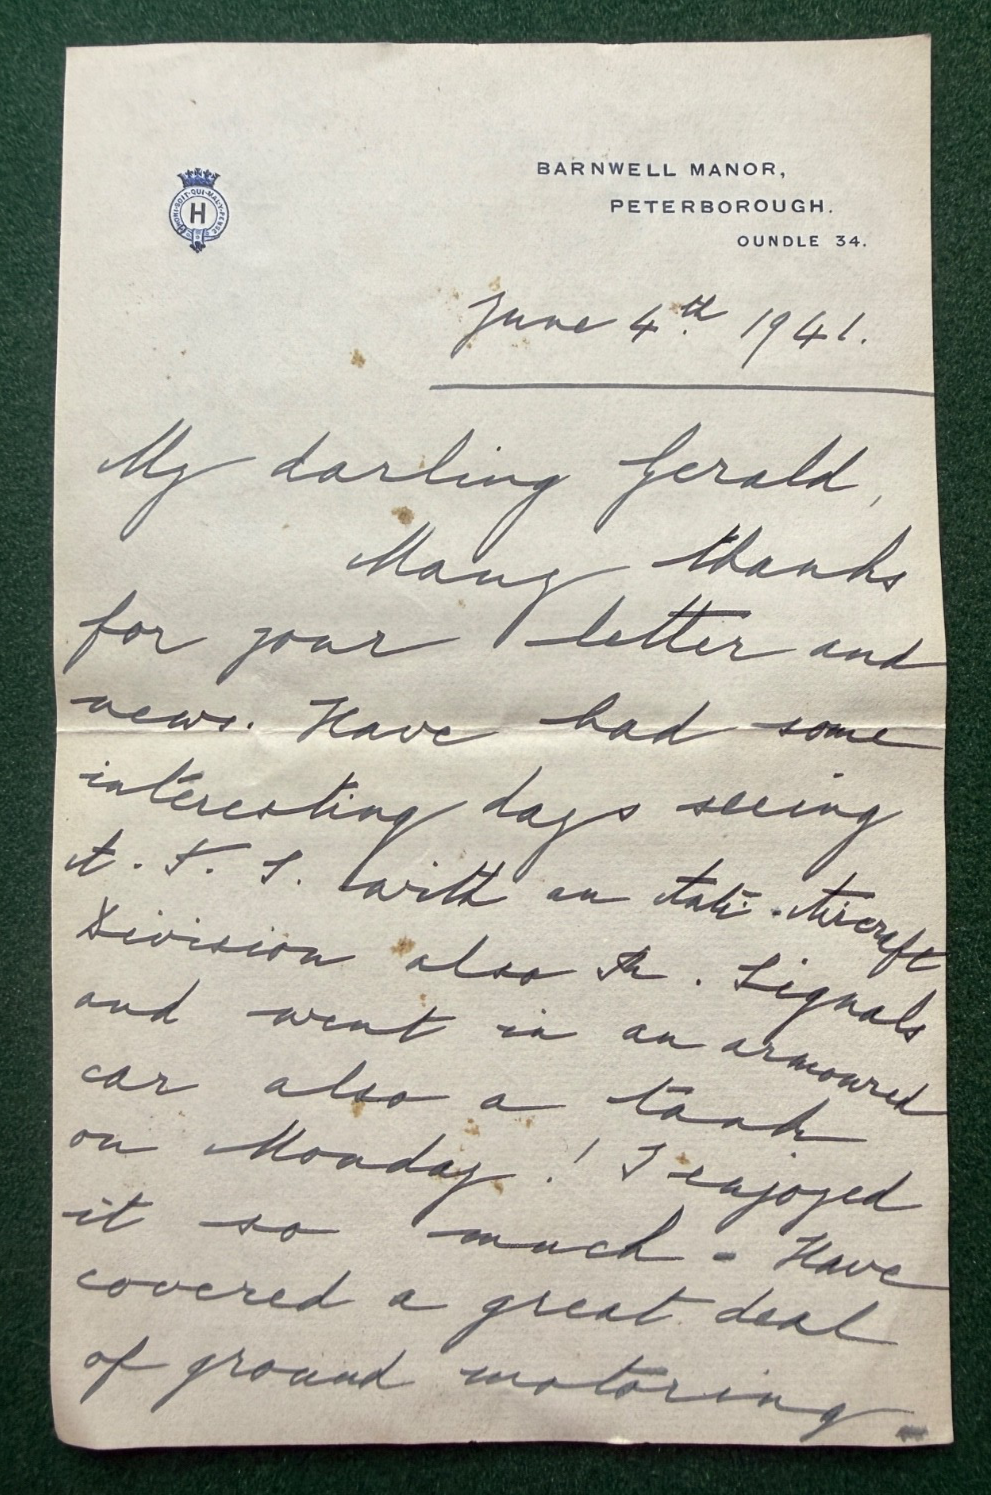 HONI·SOIT·QUI·MAL·Y·PENSE
H
BARNWELL MANOR,
PETERBOROUGH.
OUNDLE 34.
June 4th 1941.
My darling Gerald,
Many thanks
for your letter and
news. Have had some
interesting days seeing
A. T. S. with an Anti-Aircraft
Division also Signals
and went in an armoured
car also a tank
on Monday! I enjoyed
it so much - Have
covered a great deal
of ground motoring